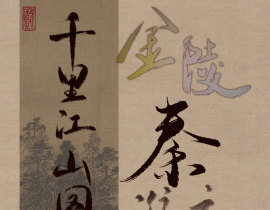 千里江山图
金陵
秦淮